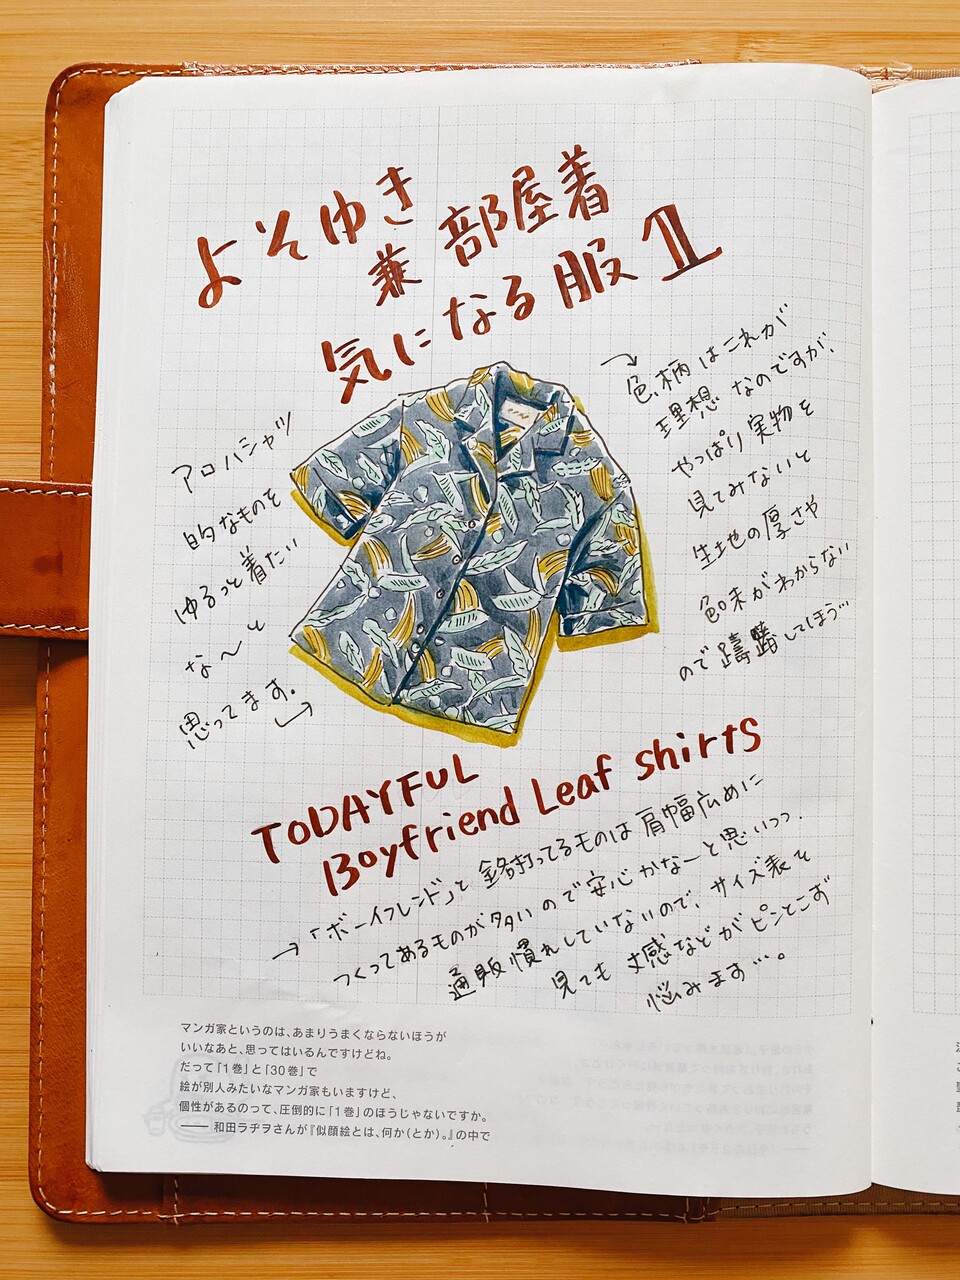 よそゆき
兼 部屋着
気になる服 1
アロハシャツ
的なものを
ゆるっと着たい
な〜と
思ってます。
→色柄はこれが
理想なのですが、
やっぱり実物を
見てみないと
生地の厚さや
色味がわからない
ので躊躇してしまう…
TODAYFUL
Boyfriend Leaf shirts
→「ボーイフレンド」と銘打ってるものは肩幅広めに
つくってあるものが多いので安心かなーと思いつつ、
通販慣れしていないので、サイズ表を
見ても丈感などがピンとこず
悩みます…。
マンガ家というのは、あまりうまくならないほうが
いいなあと、思ってはいるんですけどね。
だって「1巻」と「30巻」で
絵が別人みたいなマンガ家もいますけど、
個性があるのって、圧倒的に「1巻」のほうじゃないですか。
—— 和田ラヂヲさんが『似顔絵とは、何か(とか)。』の中で